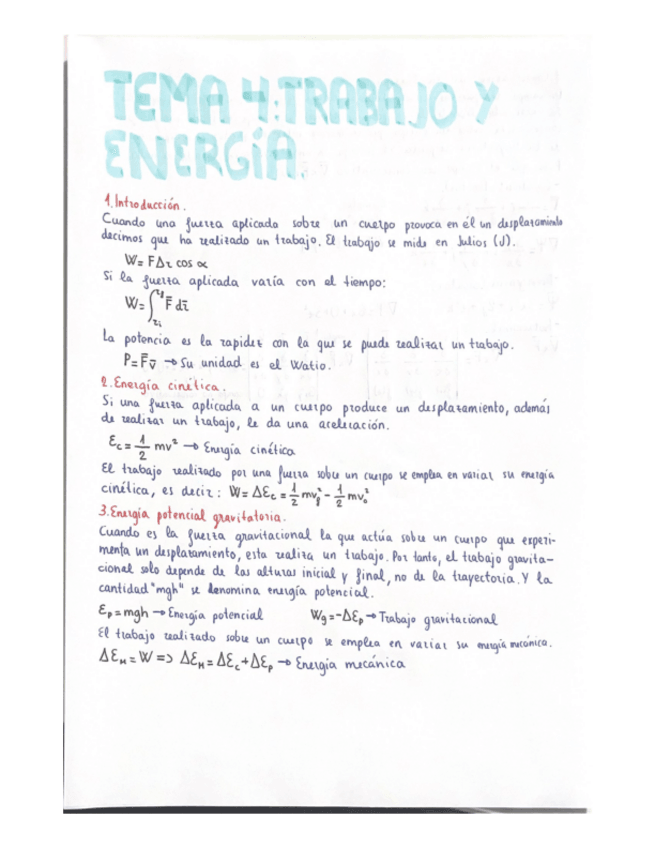 TEMA 4: TRABAJO Y
ENERGÍA.
1. Introducción.
Cuando una fuerza aplicada sobre un cuerpo provoca en él un desplazamiento
decimos que ha realizado un trabajo. El trabajo se mide en Julios (J).
W = F Δr cos α
Si la fuerza aplicada varía con el tiempo:
W = ∫ F̄ dr̄
La potencia es la rapidez con la que se puede realizar un trabajo.
P = F̄ v̄ → Su unidad es el Watio.
2. Energía cinética.
Si una fuerza aplicada a un cuerpo produce un desplazamiento, además
de realizar un trabajo, le da una aceleración.
Ec = 1/2 mv² → Energía cinética
El trabajo realizado por una fuerza sobre un cuerpo se emplea en variar su energía
cinética, es decir: W = ΔEc = 1/2 mv_f² - 1/2 mv₀²
3. Energía potencial gravitatoria.
Cuando es la fuerza gravitacional la que actúa sobre un cuerpo que experi-
menta un desplazamiento, esta realiza un trabajo. Por tanto, el trabajo gravita-
cional solo depende de las alturas inicial y final, no de la trayectoria. Y la
cantidad "mgh" se denomina energía potencial.
Ep = mgh → Energía potencial Wg = -ΔEp → Trabajo gravitacional
El trabajo realizado sobre un cuerpo se emplea en variar su energía mecánica.
ΔEM = W => ΔEM = ΔEc + ΔEp → Energía mecánica